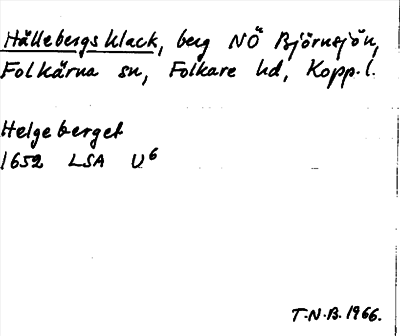 Hällebergs klack, berg NÖ Björnsjön,
Folkärna sn, Folkare hd, Kopp.l.
Helgeberget
1652 LSA U6
T.N.B. 1966.